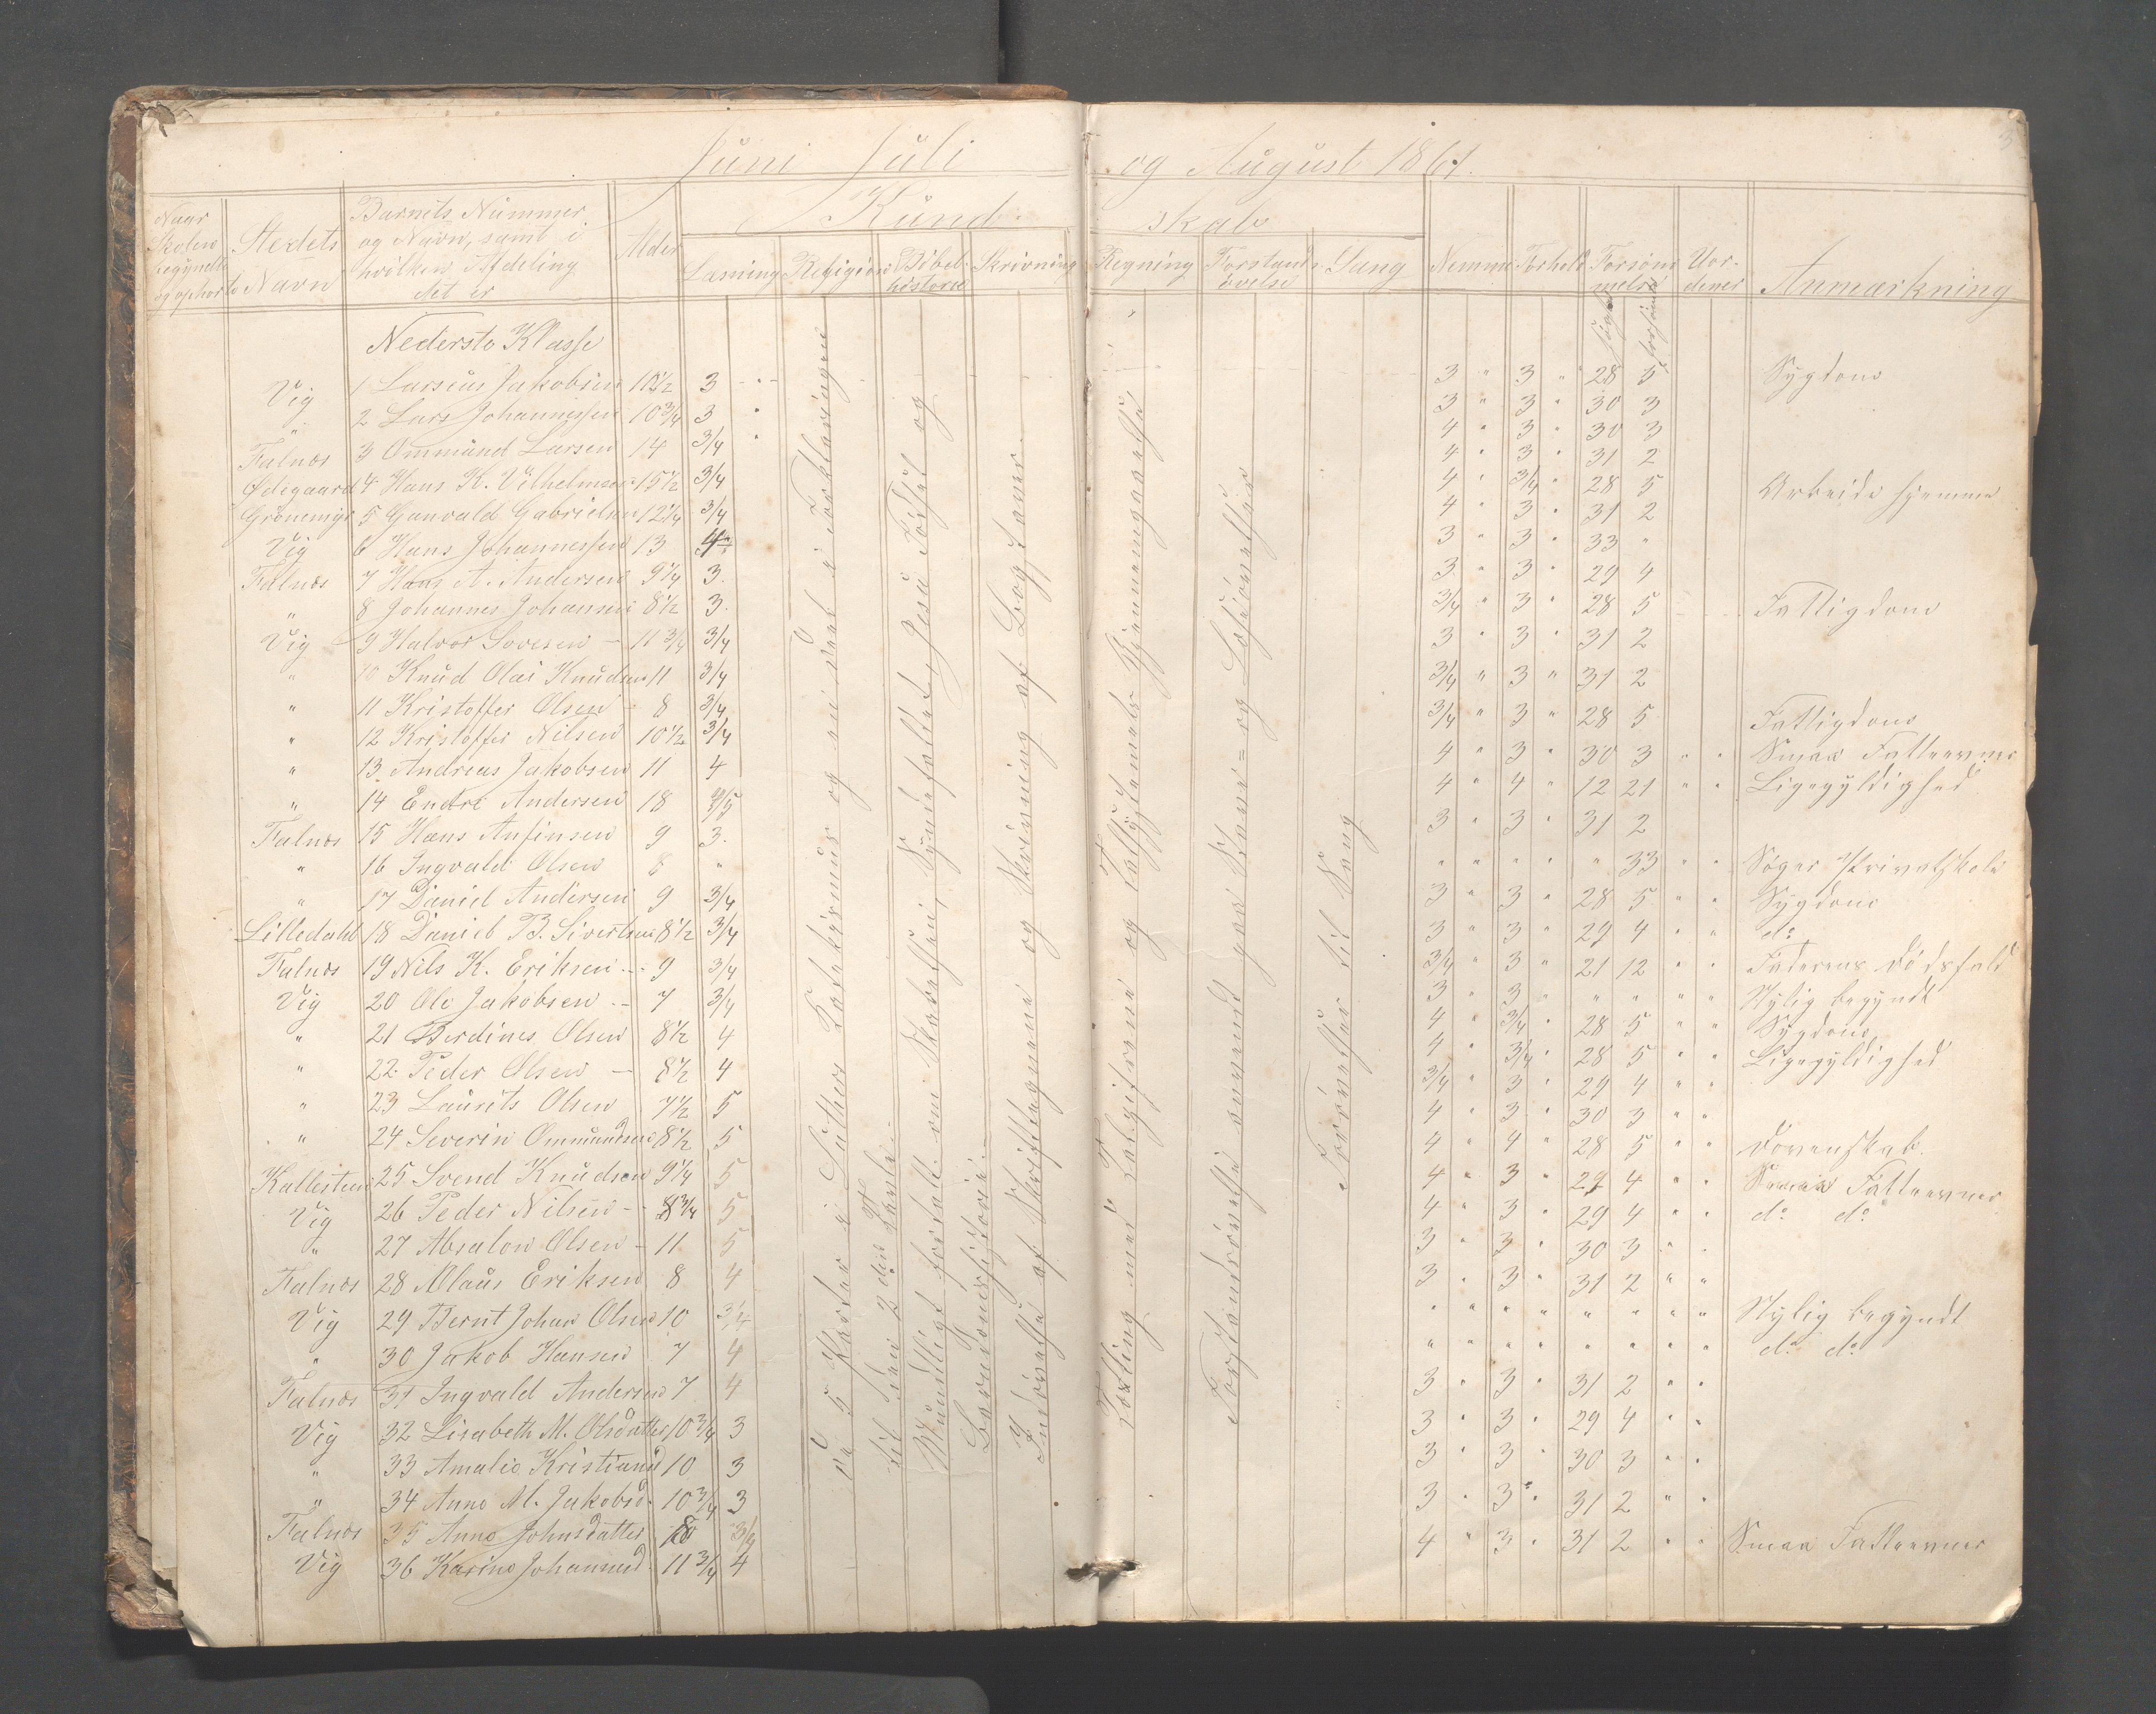 Juni Juli og August 1861.
3
Naar Skolen begyndte og ophørte
Stedets Navn
Barnets Nummer og Navn, samt i hvilken Afdeling det er
Alder
Kundskab
Læsning
Religion
Bibelhistorie
Skrivning
Regning
Forstandsøvelse
Sang
Nemme
Forhold
Forsømmelse
Anmærkning
Nederste Klasse
Vig 1 Larseus Jakobsen 10½ 3 3 " 3 " 28 5 Sygdom
" 2 Lars Johannessen 10¾ 3 3 " 3 " 30 3
Falnæs 3 Ommund Larsen 14 3/4 4 " 3 " 30 3
Ødegaard 4 Hans K. Vilhelmsen 15½ 3/4 4 " 3 " 31 2
Grønemyr 5 Gunvald Gabrielsen 12¼ 3/4 4 " 3/4 " 28 5 Arbeide hjemme
Vig 6 Hans Johannessen 13 4 4 " 3 " 31 2
Falnæs 7 Hans A. Andersen 9¼ 3 3 " 3 " 33 "
" 8 Johannes Johansen 8½ 3 3 " 3 " 29 4
Vig 9 Halvor Sovesen 11¾ 3/4 3/4 " 3 " 28 5 Fattigdom
" 10 Knud Olai Knudsen 11 3/4 3 " 3 " 31 2
" 11 Kristoffer Olsen 8 3/4 3/4 " 3 " 31 2
" 12 Kristoffer Nilsen 10½ 3/4 3/4 " 3 " 28 5 Fattigdom
" 13 Andreas Jakobsen 11 4 4 " 3 " 30 3 " " Smaa Fatteevner
" 14 Endre Andersen 18 4/5 4 " 4 " 12 21 " " Ligegyldighed
Falnæs 15 Hans Anfinsen 9 3 3 " 3 " 31 2
" 16 Ingvald Olsen 8 " " " " " " 33 " " Søger Privatskole
" 17 Daniel Andersen 9 3/4 3 " 3 " 28 5 " " Sygdom
Lilledahl 18 Daniel B. Sivertsen 8½ 3/4 3 " 3 " 29 4 " " do
Falnæs 19 Nils K. Eriksen 9 3/4 3/4 " 3 " 21 12 " " Faderens Dødsfald
Vig 20 Ole Jakobsen 7 3/4 3 " 3 " " " " " Nylig begyndt
" 21 Berdines Olsen 8½ 4 4 " 3/4 " 28 5 " " Sygdom
" 22 Peder Olsen 8½ 4 4 " 3/4 " 28 5 " " Ligegyldighed
" 23 Laurits Olsen 7½ 5 3/4 " 3 " 29 4 " "
" 24 Severin Ommundsen 8½ 5 4 " 3 " 30 3 " "
Kallesteen 25 Svend Knudsen 9¼ 5 4 " 4 " 28 5 " " Dovenskab.
Vig 26 Peder Nilsen 8¾ 5 4 " 3 " 29 4 " " Smaa Fatteevner
" 27 Absalon Olsen 11 5 4 " 3 " 29 4 " " do do
Falnæs 28 Klaus Eriksen 8 4 3 " 3 " 30 3 " "
Vig 29 Bernt Johan Olsen 10 3/4 3 " 3 " 31 2 " "
" 30 Jakob Hansen 7 4 " " " " " " " " Nylig begyndt
Falnæs 31 Ingvald Andersen 7 4 " " " " " " " " do do
Vig 32 Lisabeth M. Olsdatter 10¾ 3 3 " 3 " 31 2 " "
" 33 Amalie Kristiansd 10 3 3 " 3 " 29 4 " "
" 34 Anne M. Jakobsd. 10¾ 3 3 " 3 " 30 3 " "
Falnæs 35 Anne Johnsdatter 8 3/4 3 " 3 " 31 2 " "
Vig 36 Karine Johannesd. 11¾ 4 4 " 3 " 31 2 " " Smaa Fatteevner
De 5 Parter i Luthers Katekismus og en Deel i Forklaringen
til den 2den Parts.
Mundtligt fortalt om Skabelsen, Syndefaldet, Jesu Fødsel og
Barndomshistorie.
Indøvelse af Skrifttegnene og Skrivning af Bogstaver.
Tælling med Talgiverne og Talsystemets Gjennemgaaelse
Forstandsøvelse anvendt paa Stave- og Læseøvelser
Forøvelser til Sang